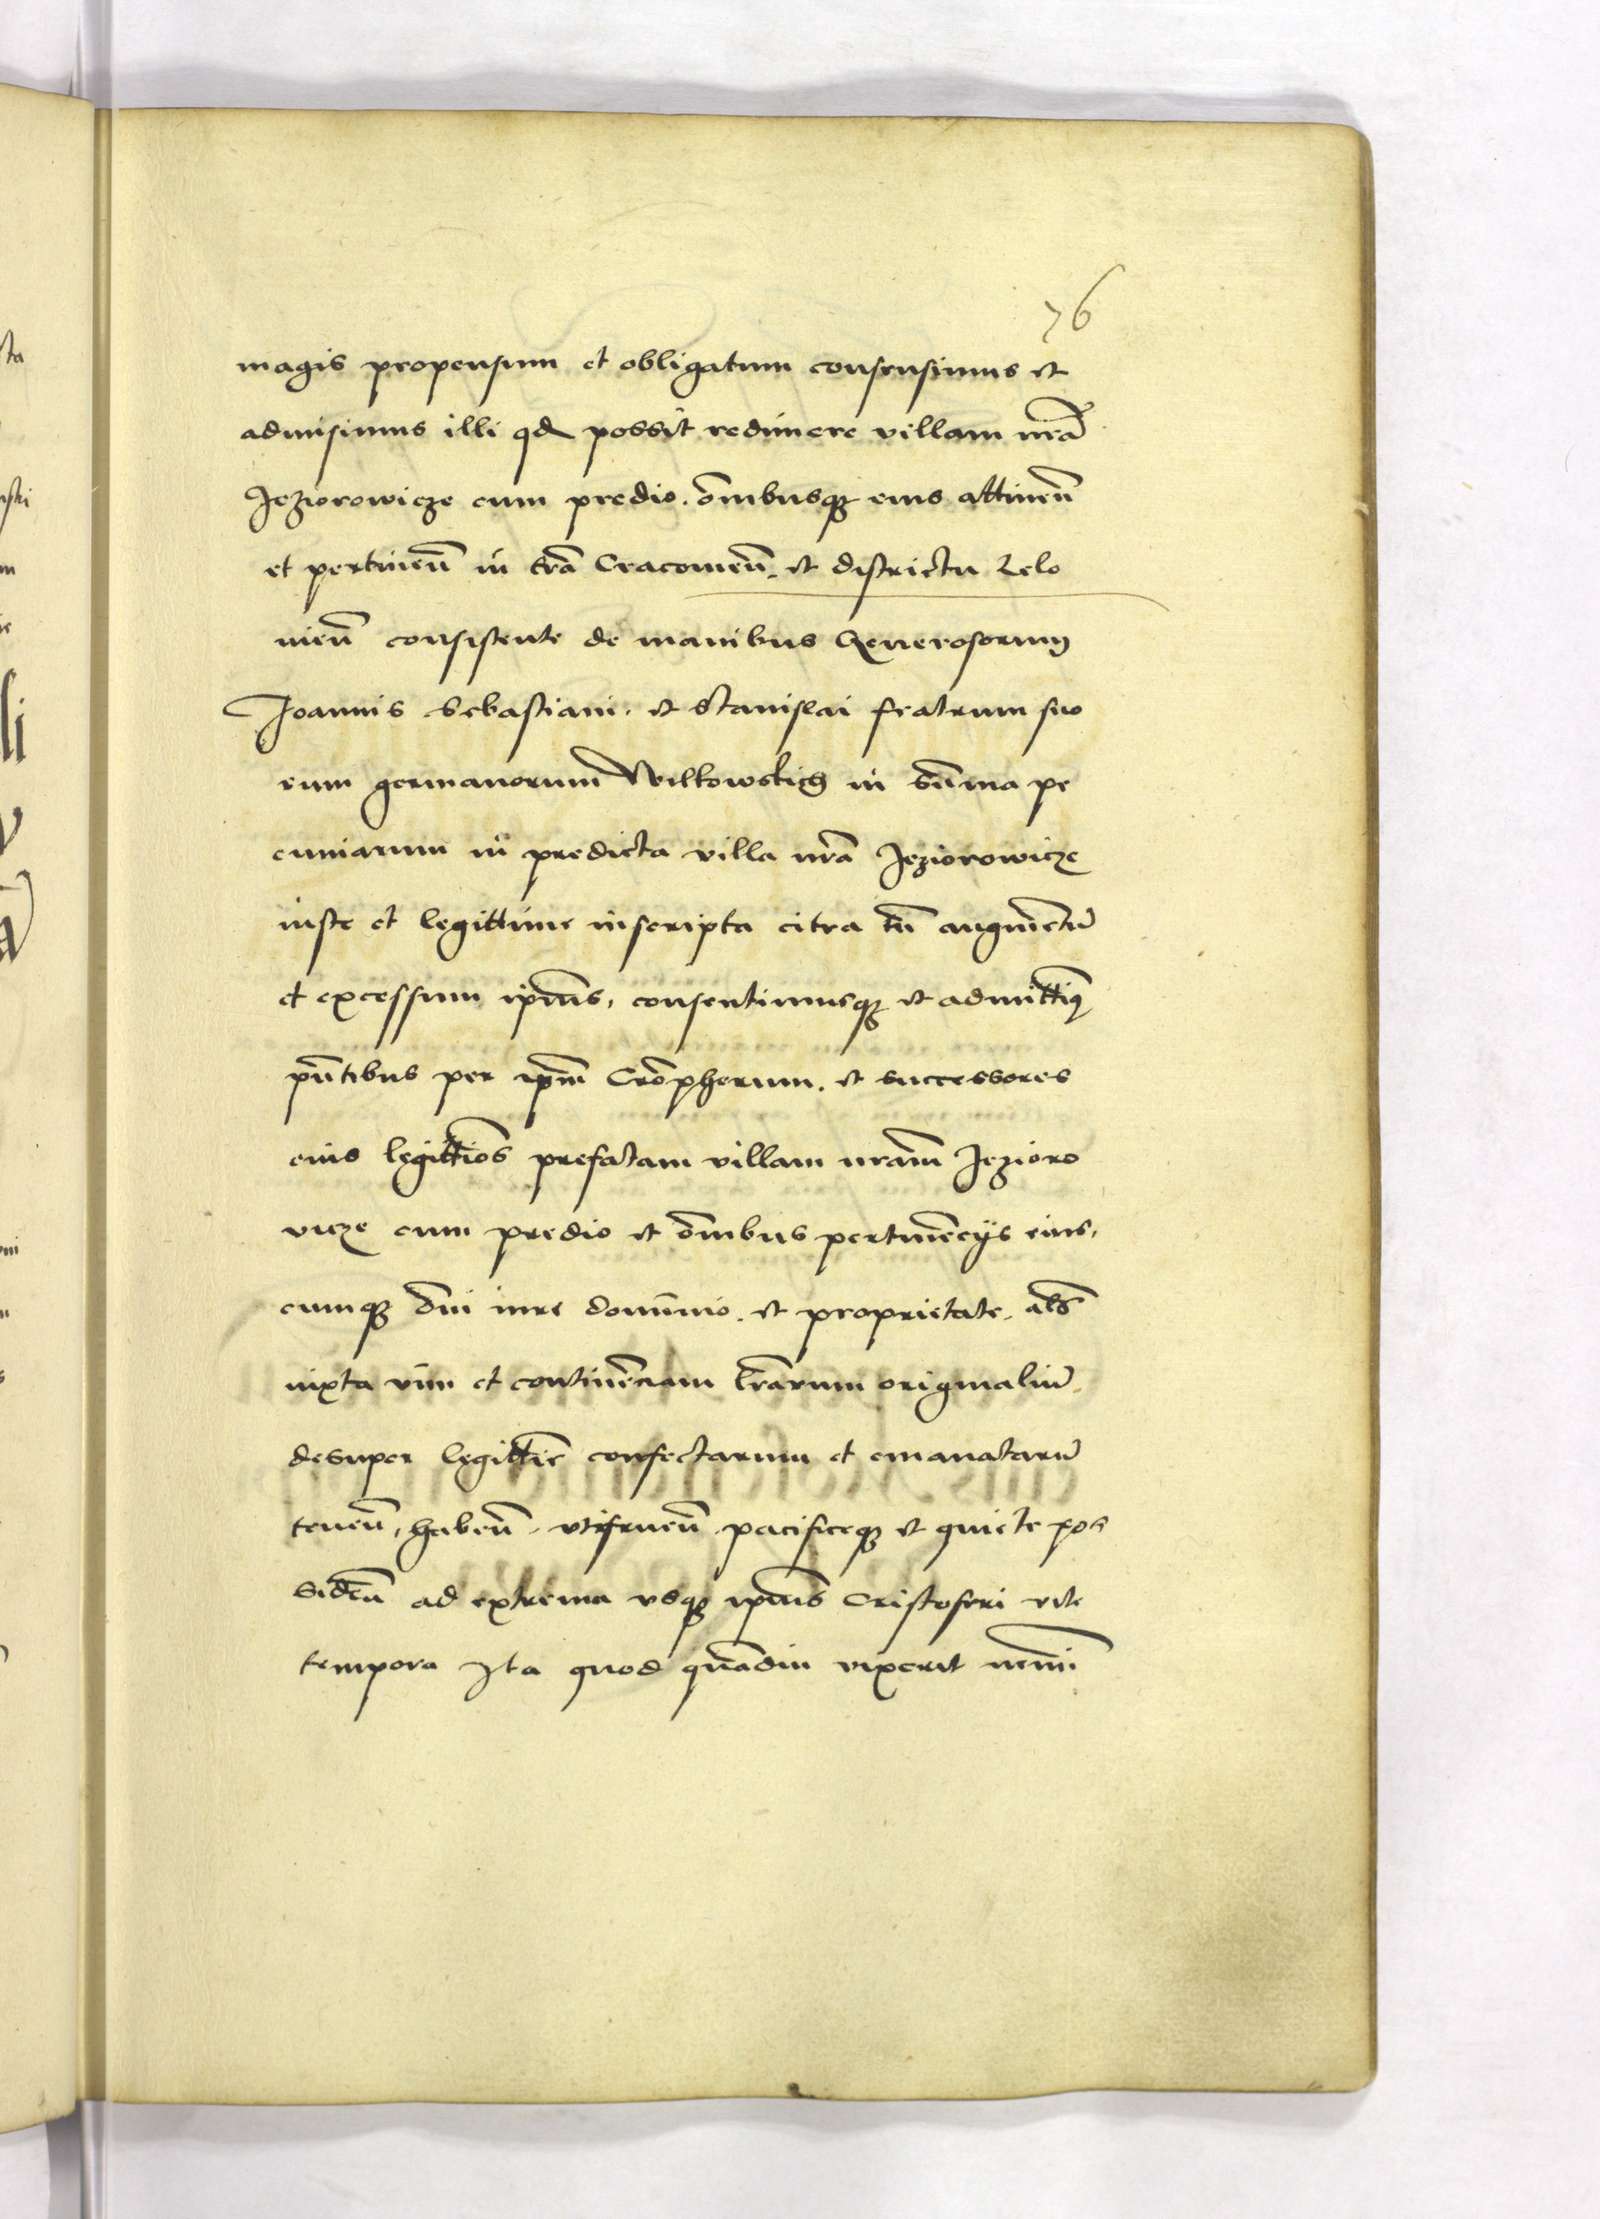 76
magis propensum et obligatum consensimus et
admisimus illi qd possit redimere villam nrã
Jeziorowicze cum predio. õmibusqz eius attineñ
et pertineñ in trã Cracovieñ. et districtu Lelo
vieñ consistente de manibus Generosorum
Joannis Sebastiani. et Stanislai fratrum suo
rum germanorum Wilkowskich in sũma pe
cuniarum in predicta villa nrã Jeziorowicze
iuste et legittime inscripta citra tñ augmẽtũ
et excessum ipius, consentimusqz et admittim9
pñtibus per ipm Crõpherum. et successores
eius legittiõs prefatam villam nram Jezioro
vicze cum predio et õmibus pertinẽcijs eius,
cumqz õni iure dominio. et proprietate. als
iuxta vim et continẽciam lrãrum originaliũ
desuper legittiẽ confectarum et emanatarũ
teneñ, habeñ. utifrueñ. pacificeqz et quiete pos
sideñ ad extrema usqz ipius Cristoferi vite
tempora Ita quod quãdiu vixerit nemini